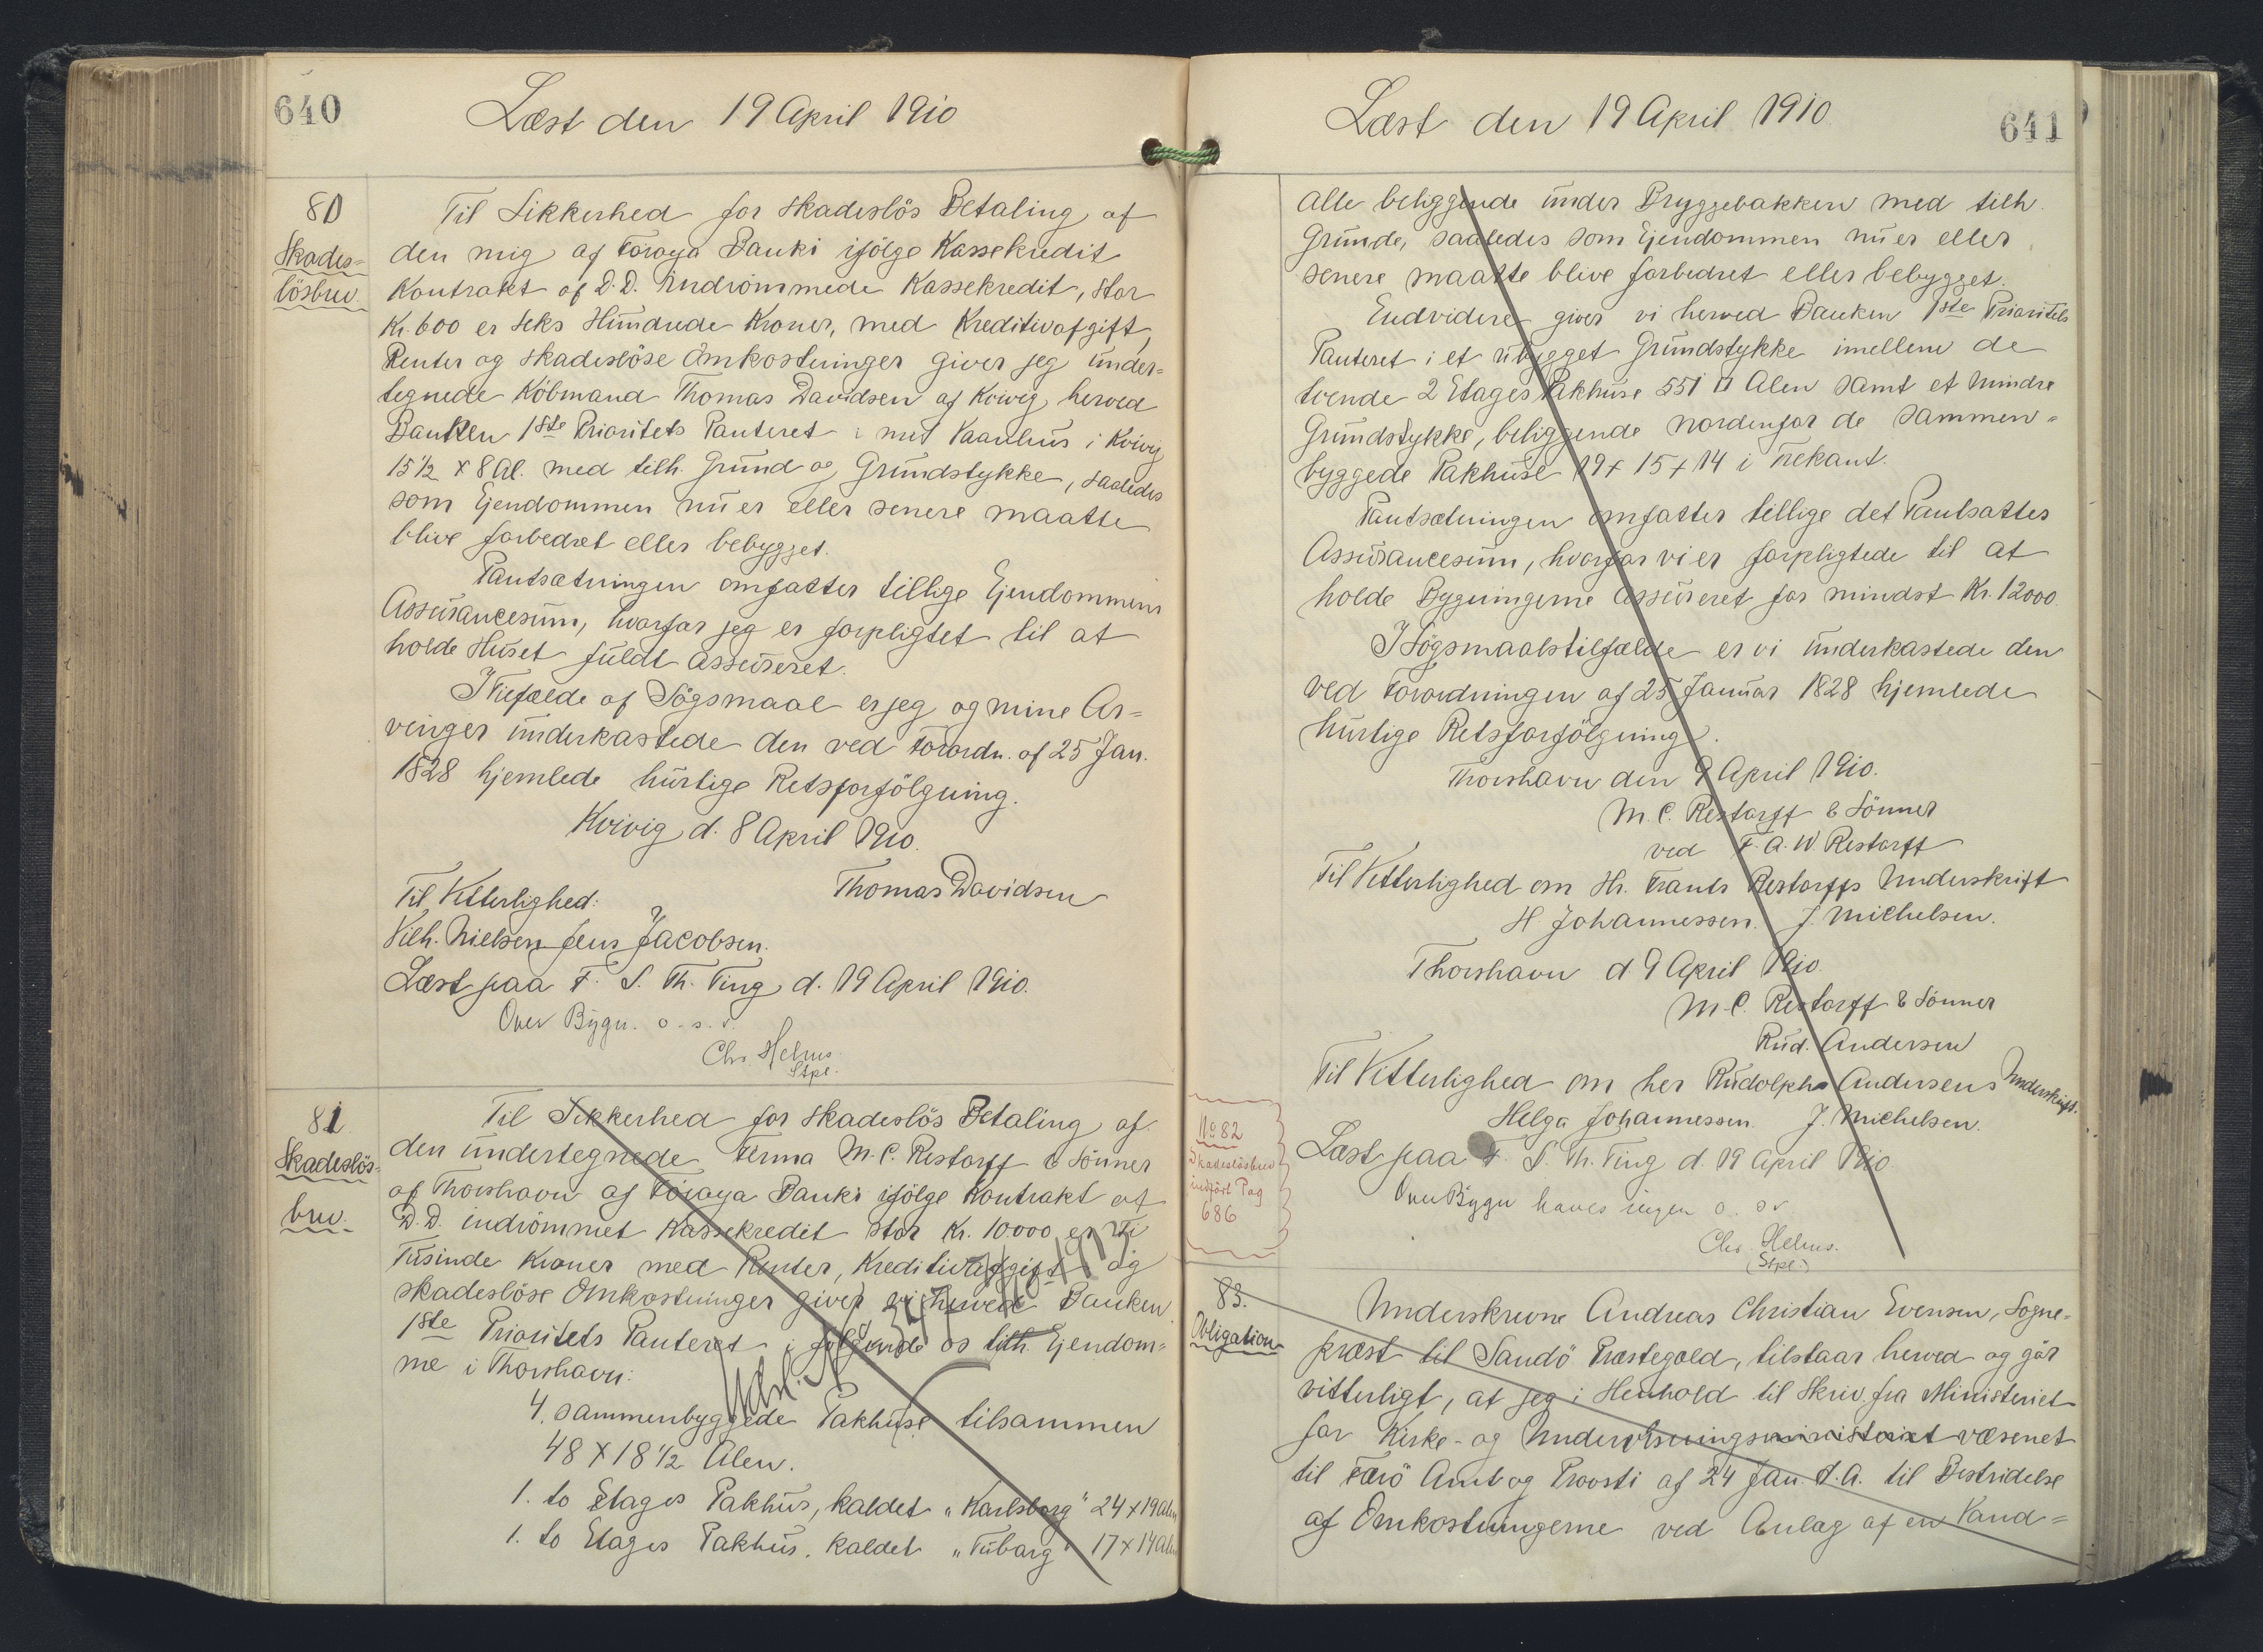 640
Læst den 19 April 1910
80
Skades=
lösbrev
Til Sikkerhed for skadeslös Betaling af
den mig af Föroya Banki ifölge Kassekredit
Kontrakt af D.D. indrömmede Kassekredit, stor
Kr. 600 er Seks Hundrede Kroner, med Kreditivafgift,
Renter og skadeslöse Omkostninger giver jeg under=
tegnede Köbmand Thomas Davidsen af Kvivig herved
Banken 1ste Prioritets Panteret i mit Vaanhus i Kvivig
15½ x 8 Al. med tilh. Grund og Grundstykke, saaledes
som Ejendommen nu er eller senere maatte
blive forbedret eller bebygget.
Pantsætningen omfatter tillige Ejendommens
Assurancesum, hvorfor jeg er forpligtet til at
holde Huset fuldt assureret.
I Tilfælde af Sögsmaal er jeg og mine Ar=
vinger underkastede den ved Forordn. af 25 Jan.
1828 hjemlede hurtige Retsforfölgning.
Kvivig d. 8 April 1910.
Thomas Davidsen
Til Vitterlighed:
Vilh. Nielsen Jens Jacobsen.
Læst paa F. S. Th. Ting d. 19 April 1910.
Over Bygn. o. s. v.
Chr. Helms
Stpl.
81
Skadeslös=
brev.
Til Sikkerhed for skadeslös Betaling af
den undertegnede Firma M. C. Restorff & Sönner
af Thorshavn af Föroya Banki ifölge Kontrakt af
D. D. indrömmet Kassekredit stor Kr. 10.000 er Ti
Tusinde Kroner med Renter, Kreditivafgift og
skadeslöse Omkostninger giver vi herved Banken
1ste Prioritets Panteret i fölgende os tilh. Ejendom=
me i Thorshavn:
4. sammenbyggede Pakhuse tilsammen
48 x 18½ Alen.
1. to Etages Pakhus, kaldet "Karlsborg" 24 x 19 Alen
1. to Etages Pakhus, kaldet "Tuborg" 17 x 14 Alen
Læst den 19 April 1910
641
alle beliggende under Bryggebakken med tilh.
Grunde, saaledes som Ejendommen nu er eller
senere maatte blive forbedret eller bebygget.
Endvidere giver vi herved Banken 1ste Prioritets
Panteret i et ubygget Grundstykke imellem de
tvende 2 Etages Pakhuse 551 □ Alen samt et mindre
Grundstykke, beliggende nordenfor de sammen=
byggede Pakhuse 19 x 15 x 14 i Trekant.
Pantsætningen omfatter tillige det Pantsattes
Assurancesum, hvorfor vi er forpligtede til at
holde Bygningerne assureret for mindst Kr. 12000.
I Sögsmaalstilfælde er vi underkastede den
ved Forordningen af 25 Januar 1828 hjemlede
hurtige Retsforfölgning.
Thorshavn den 9 April 1910.
M. C. Restorff & Sönner
ved F. A. W Restorff
Til Vitterlighed om Hr. Frants Restorffs Underskrift
H Johannessen. J. Michelsen.
Thorshavn d 9 April 1910.
M. C. Restorff & Sönner
Rud. Andersen
Til Vitterlighed om her Rudolph Andersens Underskrift.
Helga Johannessen. J. Michelsen.
Læst paa F. S. Th. Ting d. 19 April 1910.
Over Bygn haves ingen o. s v.
Chr. Helms.
(Stpl.)
No 82
Skadeslösbrev
indfört Pag
686
83.
Obligation
Underskrevne Andreas Christian Evensen, Sogne=
præst til Sandö Præstegæld, tilstaar herved og gör
vitterligt, at jeg i Henhold til Skriv. fra Ministeriet
for Kirke- og Undervisningsministeriet væsenet
til Færö Amt og Provsti af 24 Jan. d. A. til Bestridelse
af Omkostningerne ved Anlæg af en Vand=